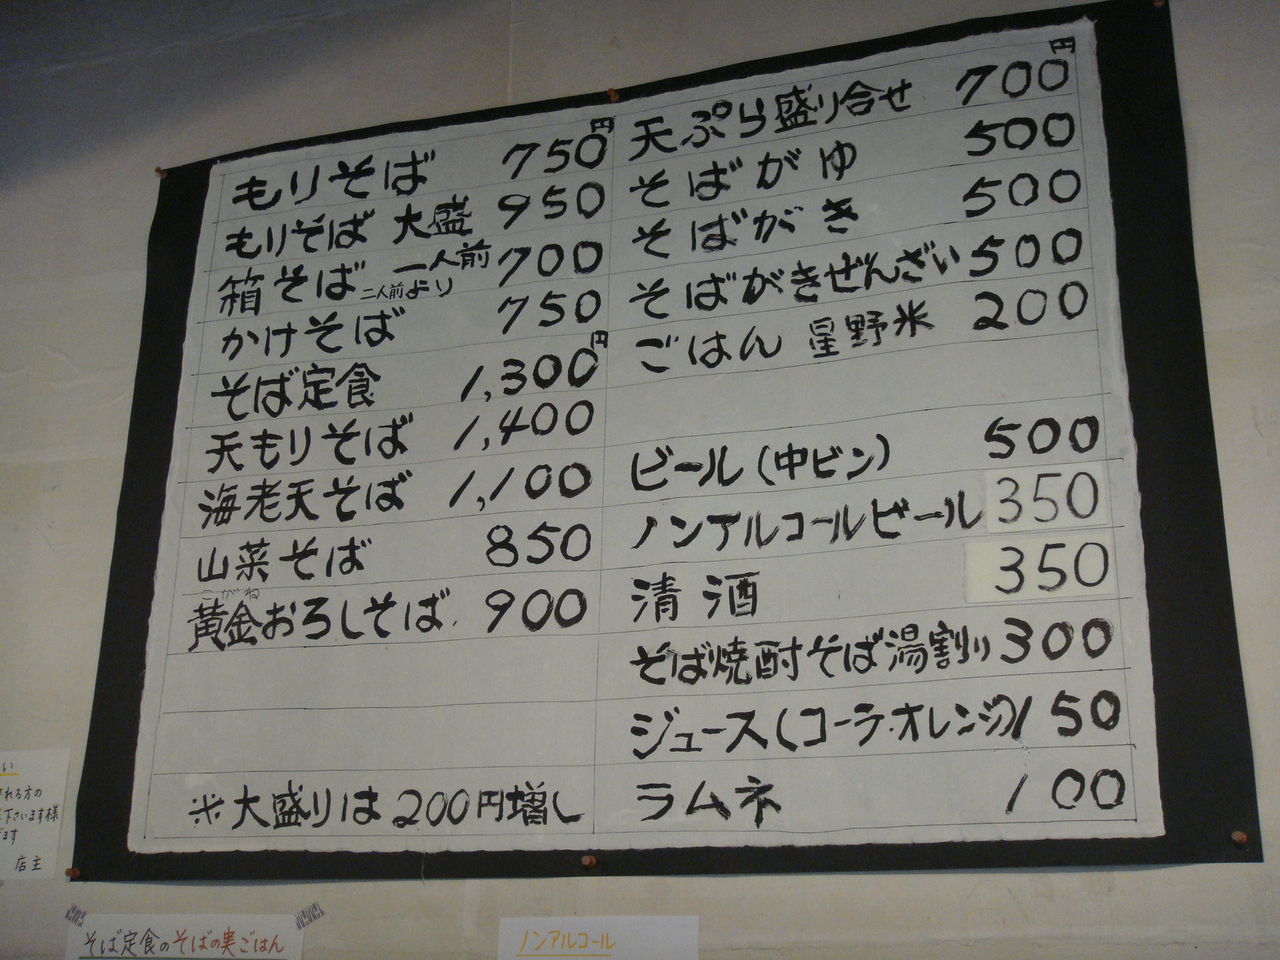 もりそば 750円
もりそば 大盛 950
箱そば 二人前より 一人前 700
かけそば 750
そば定食 1,300円
天もりそば 1,400
海老天そば 1,100
山菜そば 850
こがね
黄金おろしそば 900
※大盛りは200円増し
天ぷら盛り合せ 700円
そばがゆ 500
そばがき 500
そばがきぜんざい 500
ごはん 星野米 200
ビール(中ビン) 500
ノンアルコールビール 350
清酒 350
そば焼酎そば湯割り 300
ジュース(コーラ・オレンジ) 150
ラムネ 100
い
される方の
下さいます様
ます
店主
そば定食のそばの実ごはん
ノンアルコール